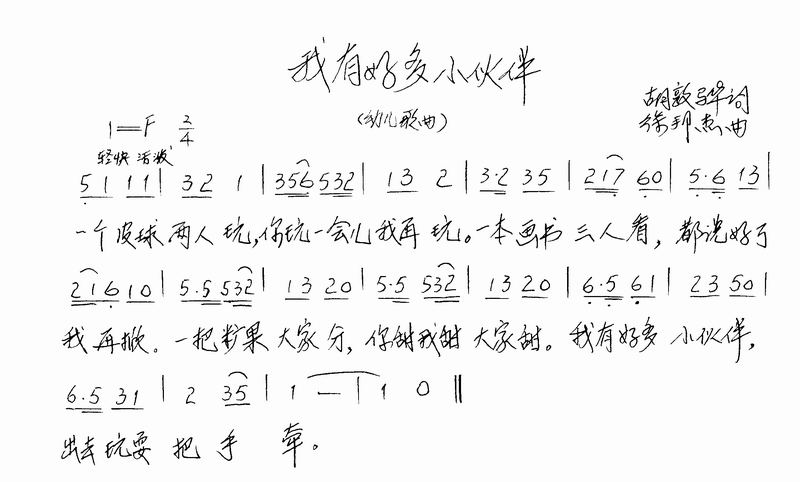 我有好多小伙伴
(幼儿歌曲)
胡敦骅词
1=F 2/4
徐邦杰曲
轻快 活泼
5 1 1 1 | 3 2 1 | 3 5 6 5 3 2 | 1 3 2 | 3·2 3 5 | 2 1 7 6 0 | 5·6 1 3 |
一个皮球两人玩,你玩一会儿我再玩。一本画书三人看,都说好了
2 1 6 1 0 | 5·5 5 3 2 | 1 3 2 0 | 5·5 5 3 2 | 1 3 2 0 | 6·5 6 1 | 2 3 5 0 |
我再掀。一把糖果大家分,你甜我甜大家甜。我有好多小伙伴,
6·5 3 1 | 2 3 5 | 1 — | 1 0 ‖
出去玩耍把手牵。